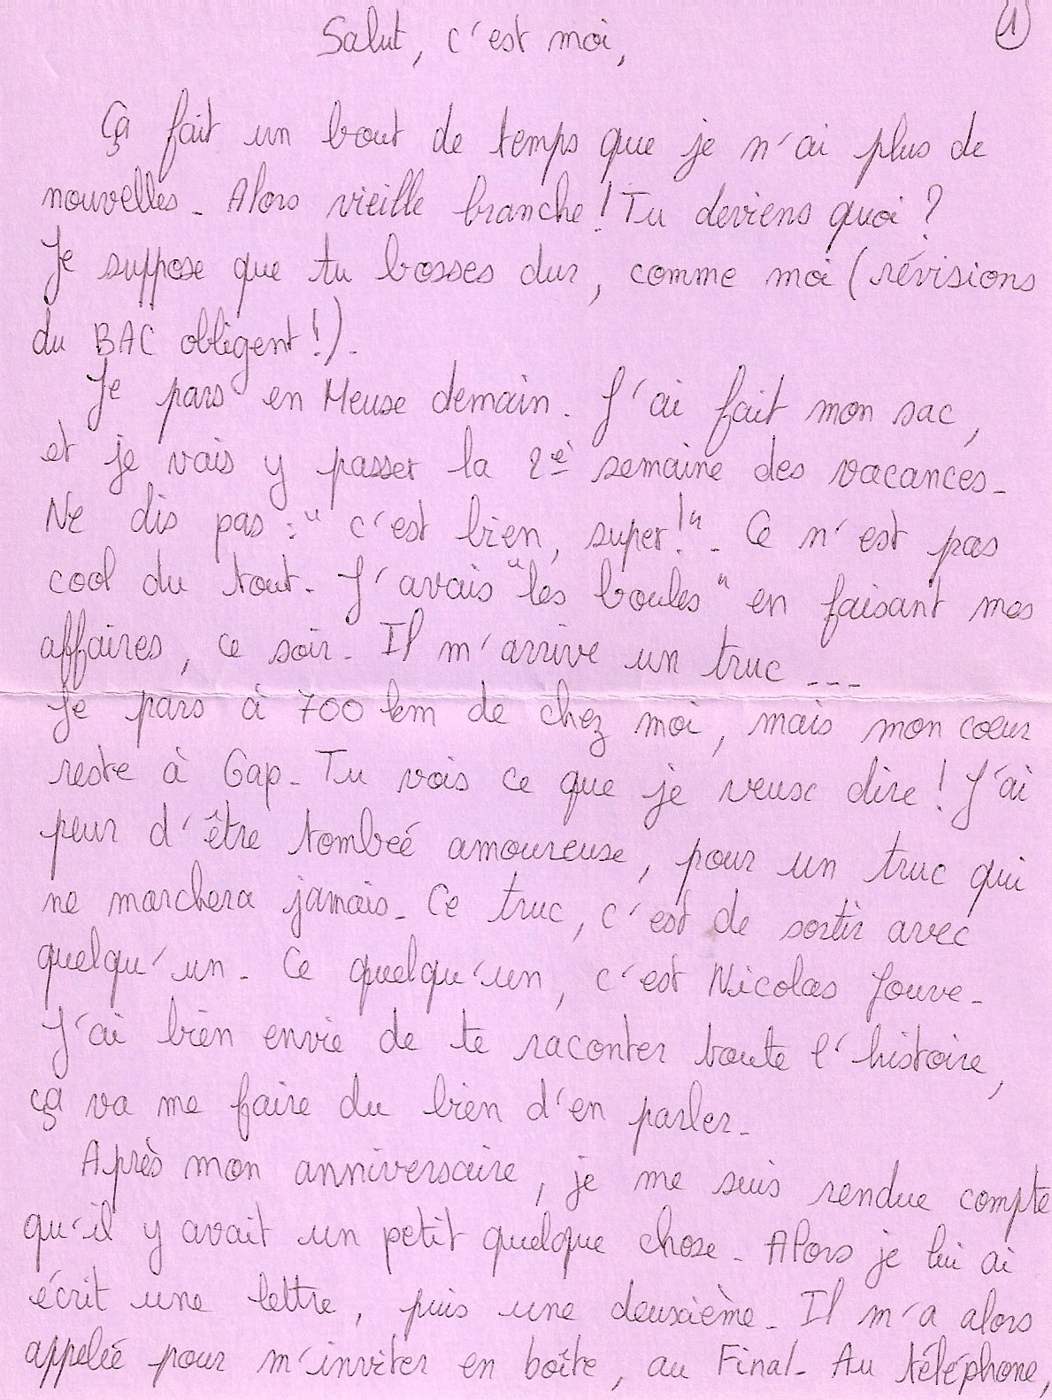 1
Salut, c'est moi,
Ça fait un bout de temps que je n'ai plus de
nouvelles. Alors vieille branche ! Tu deviens quoi ?
Je suppose que tu bosses dur, comme moi (révisions
du BAC obligent !).
Je pars en Meuse demain. J'ai fait mon sac,
et je vais y passer la 2è semaine des vacances.
Ne dis pas : "c'est bien, super !". Ce n'est pas
cool du tout. J'avais "les boules" en faisant mes
affaires, ce soir. Il m'arrive un truc ...
Je pars à 700 km de chez moi, mais mon cœur
reste à Gap. Tu vois ce que je veux dire ! J'ai
peur d'être tombée amoureuse, pour un truc qui
ne marchera jamais. Ce truc, c'est de sortir avec
quelqu'un. Ce quelqu'un, c'est Nicolas Jouve.
J'ai bien envie de te raconter toute l'histoire,
ça va me faire du bien d'en parler.
Après mon anniversaire, je me suis rendue compte
qu'il y avait un petit quelque chose. Alors je lui ai
écrit une lettre, puis une deuxième. Il m'a alors
appelée pour m'inviter en boîte, au Final. Au téléphone,